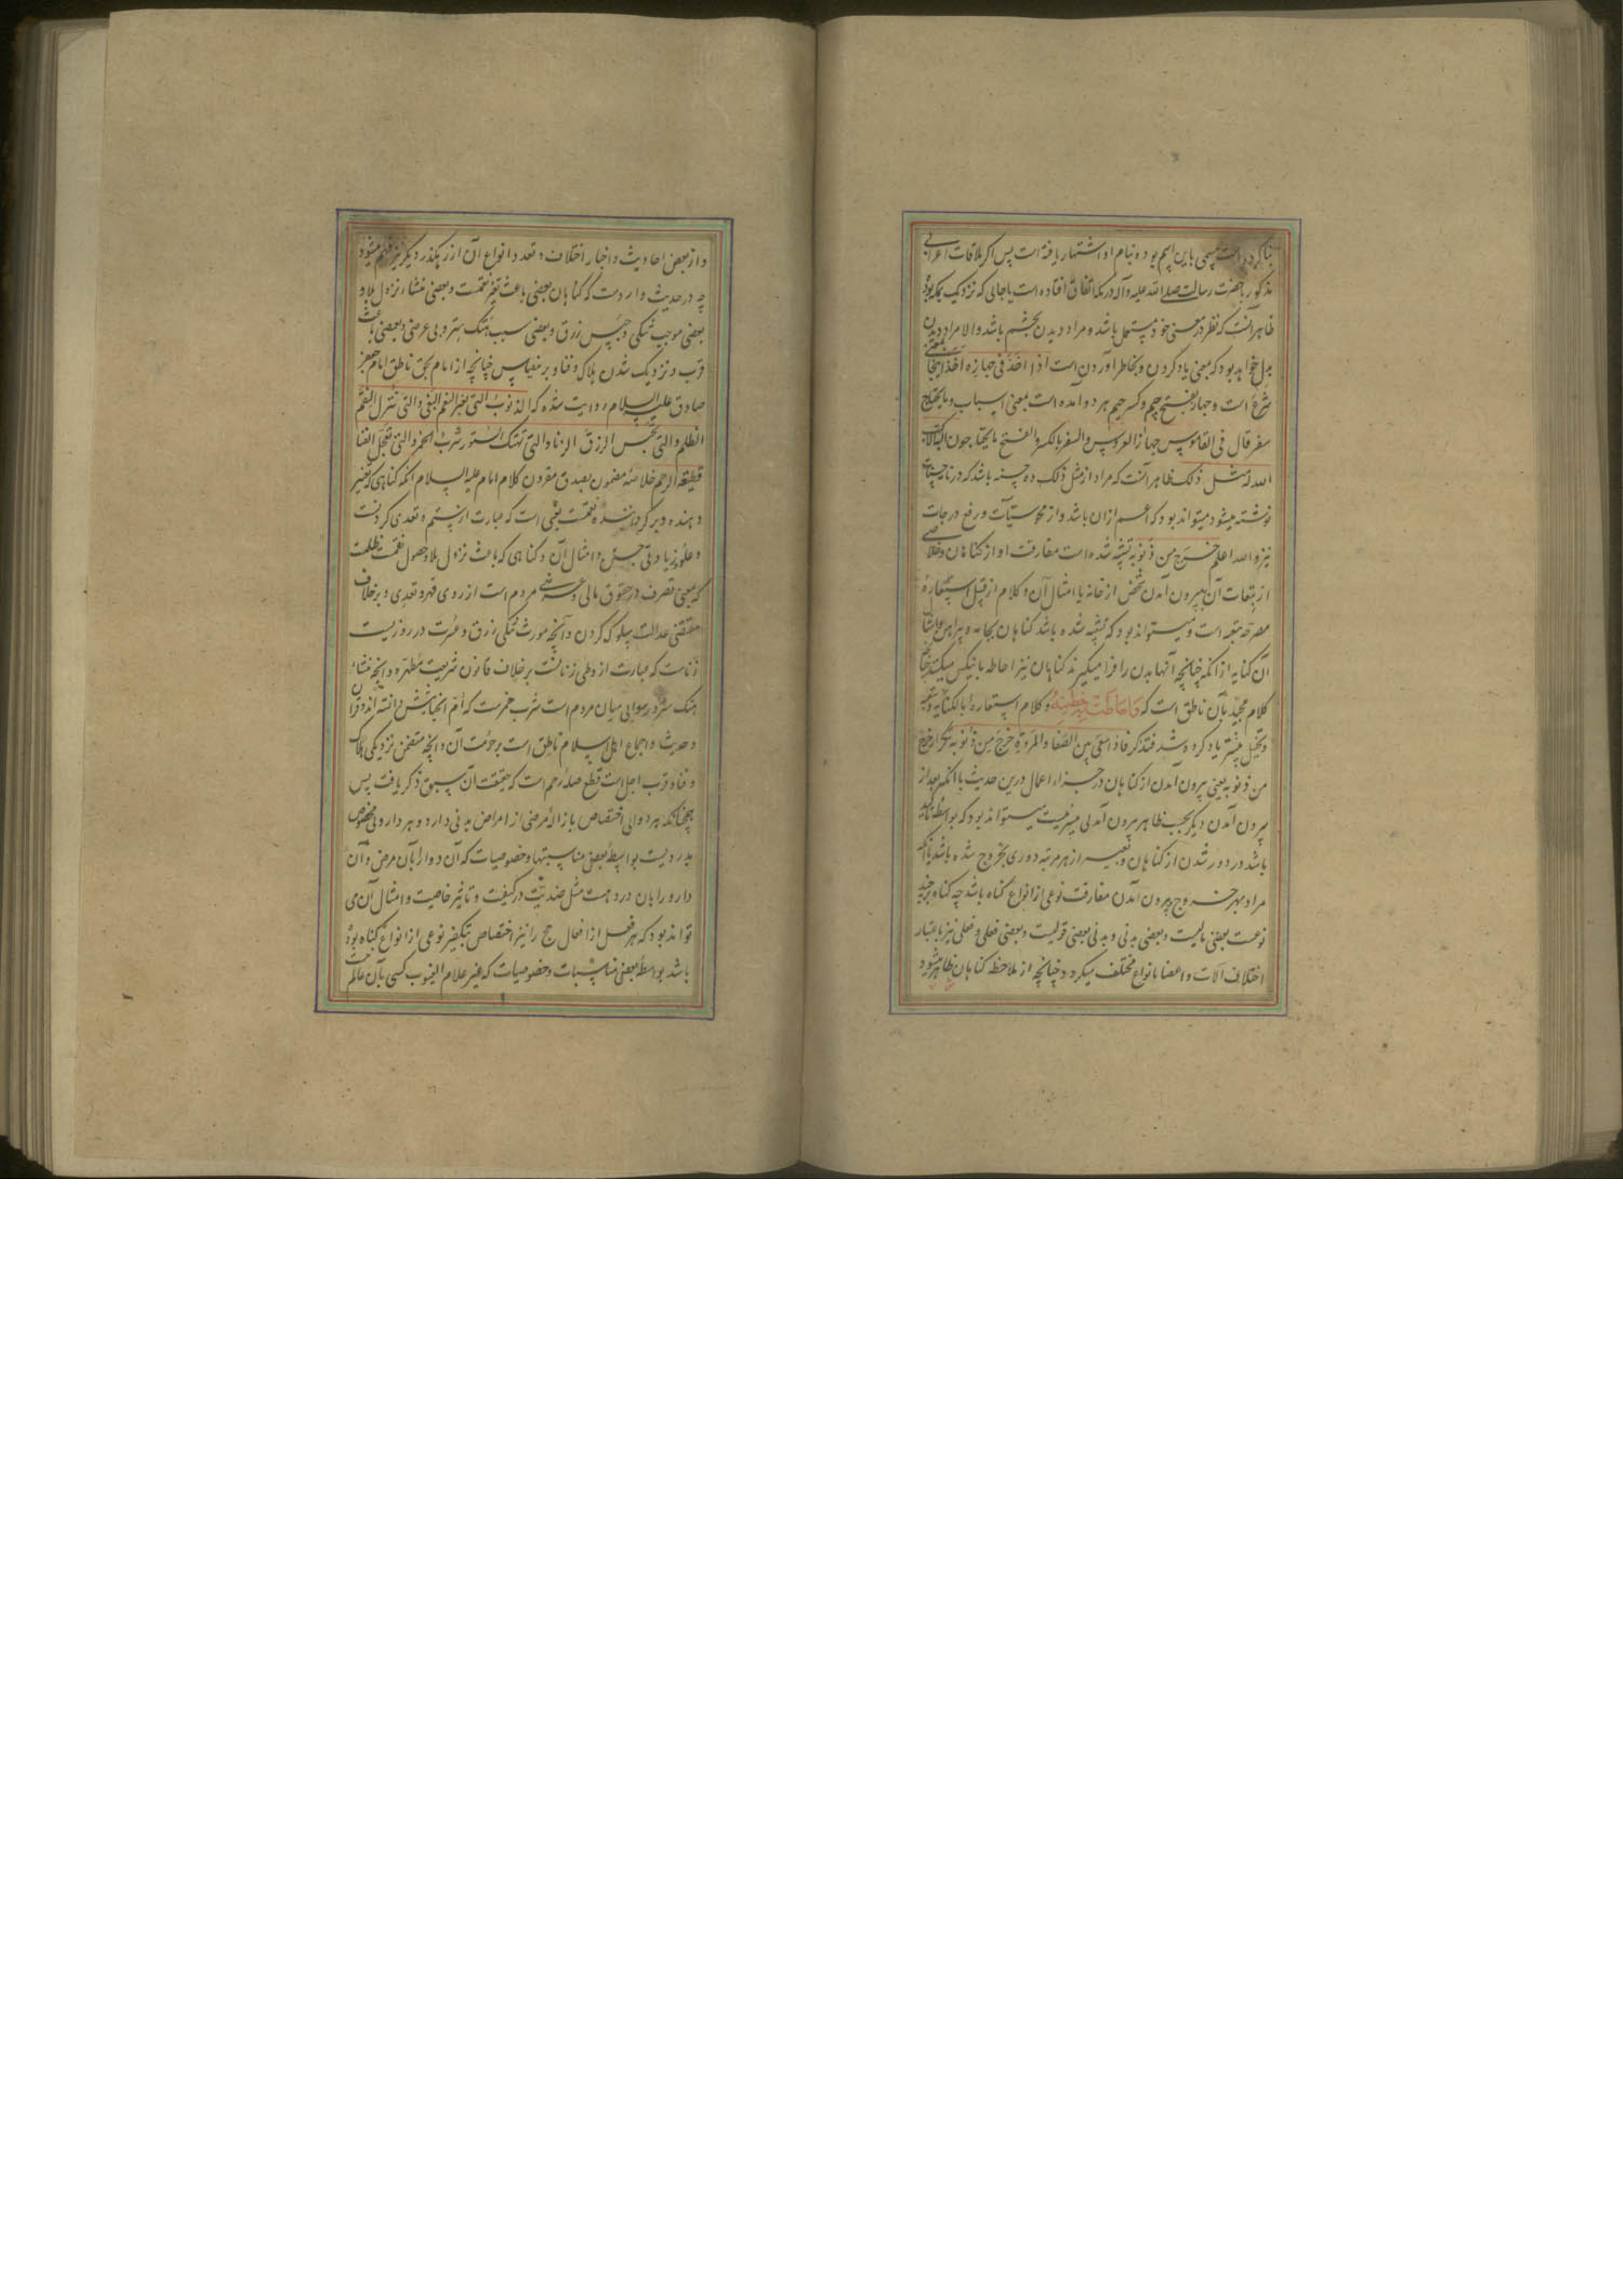 بنا کرده است مسمی باین اسم بوده و بنام او اشتهار یافته است پس اگر ملاقات اعرابی
مذکور با حضرت رسالت صلی الله علیه وآله در مکه اتفاق افتاده است یا جایی که نزدیک بمکه بود
ظاهر آنست که نظر در معنی خود مستعمل باشد و مراد دیدن بچشم باشد والا مراد دیدن
بدل خواهد بود که بمعنی یاد کردن و بخاطر آوردن است اذا اخذ فی جهازه اخذ اینجا بمعنی
شرع است و جهاز بفتح جیم و کسر جیم هر دو آمده است بمعنی اسباب و ما یحتاج
سفر قال فی القاموس جهاز العروس والسفر بالکسر والفتح ما یحتاجون الیه الا کتب
الله له مثل ذلک ظاهر آنست که مراد از مثل ذلک ده حسنه باشد که در نامه حسنات
نوشته میشود میتواند بود که اعم ازان باشد و از محو سیآت و رفع درجات
نیز والله اعلم خرج من ذنوبه تشبیه شده است مفارقت او از کناهان و خلاصی
از تبعات آن به بیرون آمدن شخص از خانه یا امثال آن و کلام از قبیل استعارهٔ
مصرحه تبعیه است و میتواند بود که تشبیه شده باشد کناهان بجامه و پیراهن و امثال
آن کنایه از انکه چنانچه آنها بدن را فرا میکیرند کناهان نیز احاطه بآنکس میکند چنانچه
کلام مجید بآن ناطق است که فاحاطت به خطیئته و کلام استعاره بالکنایه و ترشیح
و تخییل بیشتر یاد کرده شد فتذکر فاذا سعی بین الصفا والمروة خرج من ذنوبه تکرار خرج
من ذنوبه یعنی بیرون آمدن از کناهان در جزاء اعمال درین حدیث با انکه بعد از
بیرون آمدن دیکر بحسب ظاهر بیرون آمدنی میسر نیست میتواند بود که بواسطه تاکید
باشد در دور شدن از کناهان و تعبیر از هر مرتبه دوری بخروج شده باشد یا انکه
مراد بهر خروج بیرون آمدن مفارقت نوعی از انواع کناه باشد چه کناه بر چند
نوعست بعضی مالیست و بعضی بدنی و بدنی بعضی قولیست و بعضی فعلی و فعلی نیز باعتبار
اختلاف آلات و اعضا بانواع مختلف میکردد چنانچه از ملاحظه کناهان ظاهر میشود
و از بعض احادیث و اخبار اختلاف و تعدد انواع آن از رهکذر دیکر نیز فهم میشود
چه در حدیث واردست که کناهان بعضی باعث تغیر نعمت و بعضی منشاء نزول بلا و
بعضی موجب تنکی و حبس رزق و بعضی سبب هتک ستر و بی عرضی و بعضی باعث
قرب و نزدیک شدن هلاک و فنا و بر خفیا پس چنانچه از امام بحق ناطق امام جعفر
صادق علیه السلام روایت شده که الذنوب التی تغیر النعم البغی والتی تنزل النقم
الظلم والتی تحبس الرزق الزنا والتی تهتک الستور شرب الخمر والتی تعجل الفنا
قطیعة الرحم خلاصهٔ مضمون بصدق مقرون کلام امام علیه السلام آنکه کناهی که تغییر
دهنده و برکرداننده نعمت بغی است که عبارت از ستم و تعدی کردنست
و علو و زیادتی جستن و امثال آن و کناهی که باعث نزول بلا و حصول نقمت ظلمست
که بمعنی تصرف در حقوق مالی و عرضی مردم است از روی قهر و تعدی و بر خلاف
مقتضی عدالت سلوک کردن و آنچه مورث تنکی رزق و عسرت در روزیست
زناست که عبارت از وطی زنانست بر خلاف قانون شریعت مطهره و آنچه منشاء
هتک ستر و رسوایی میان مردم است شرب خمرست که ام الخبائثش دانسته اند و قرآن
و حدیث و اجماع اهل اسلام ناطق است بر حرمت آن و آنچه متضمن نزدیکی هلاک
و فنا و قرب اجل است قطع صله رحم است که حقیقت آن سبق ذکر یافت پس
همچنانکه هر دوایی اختصاص بازالهٔ مرضی از امراض بدنی دارد و هر دارویی مخصوص
بدردیست بواسطهٔ بعضی مناسبتها و خصوصیات که آن دوا را بآن مرض و آن
دارو را بآن درد هست مثل ضدیت در کیفیت و تاثیر خاصیت و امثال آن می
تواند بود که هر فعل از افعال حج را نیز اختصاص بتکفیر نوعی از انواع کناه بوده
باشد بواسطهٔ بعضی مناسبات و خصوصیات که غیر علام الغیوب کسی بآن عالم نیست